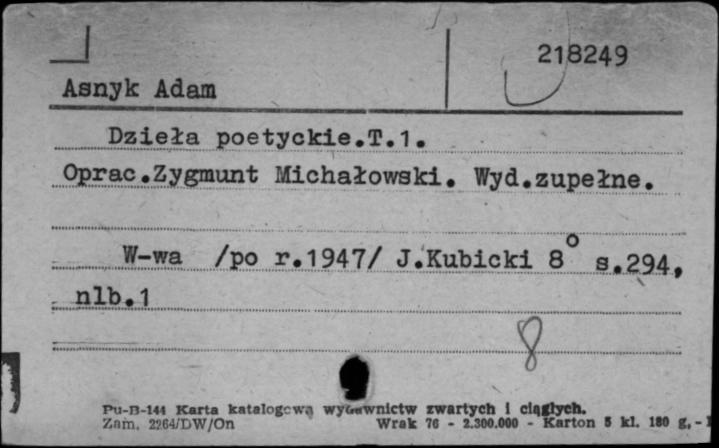 218249
Asnyk Adam
Dzieła poetyckie.T.1.
Oprac.Zygmunt Michałowski. Wyd.zupełne.
W-wa /po r.1947/ J.Kubicki 8° s.294,
nlb.1
8
Pu-B-144 Karta katalogowa wydawnictw zwartych i ciągłych.
Zam. 2264/DW/On Wrak 76 - 2.300.000 - Karton 5 kl. 180 g, -